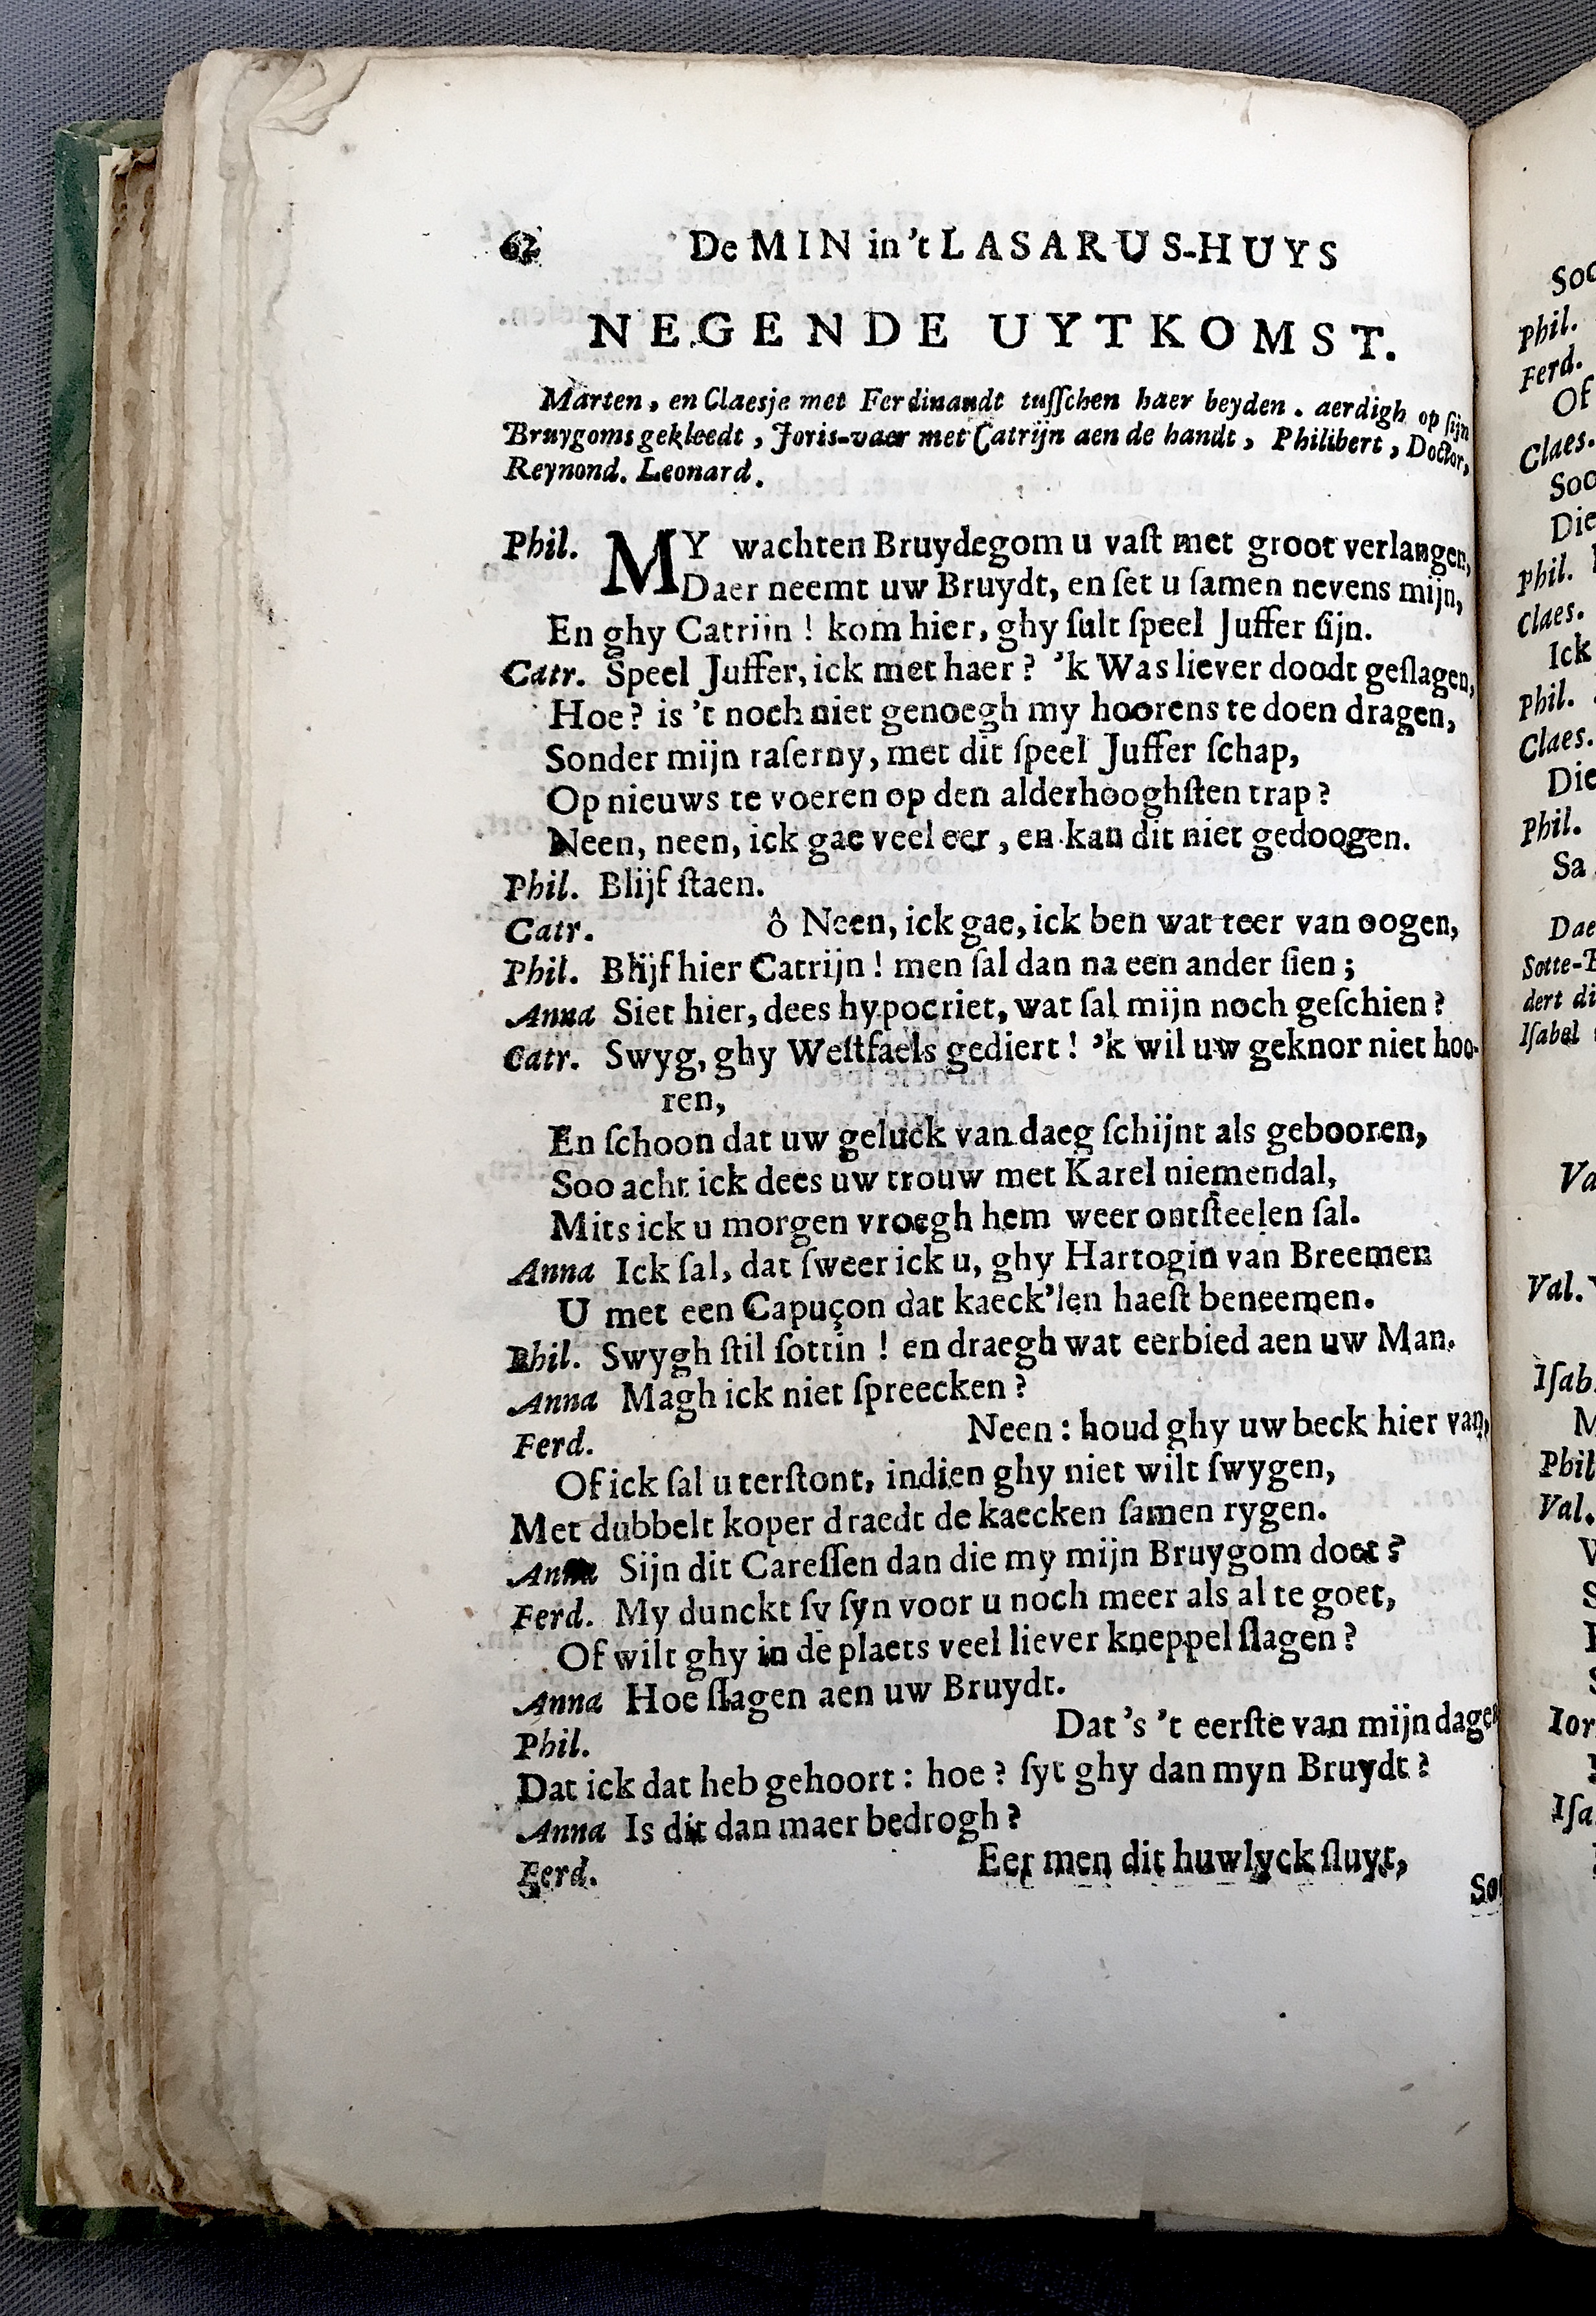 62 De MIN in 't LASARUS-HUYS
NEGENDE UYTKOMST.
Marten, en Claesje met Ferdinandt tuſſchen haer beyden. aerdigh op ſijn
Bruygoms gekleedt, Joris-vaer met Catrijn aen de handt, Philibert, Doctor,
Reynond. Leonard.
Phil. MY wachten Bruydegom u vaſt met groot verlangen,
Daer neemt uw Bruydt, en ſet u ſamen nevens mijn,
En ghy Catrijn! kom hier, ghy ſult ſpeel Juffer ſijn.
Catr. Speel Juffer, ick met haer? 'k Was liever doodt geſlagen,
Hoe? is 't noch niet genoegh my hoorens te doen dragen,
Sonder mijn raſerny, met dit ſpeel Juffer ſchap,
Op nieuws te voeren op den alderhooghſten trap?
Neen, neen, ick gae veel eer, en kan dit niet gedoogen.
Phil. Blijf ſtaen.
Catr. ô Neen, ick gae, ick ben wat teer van oogen,
Phil. Blijf hier Catrijn! men ſal dan na een ander ſien;
Anna Siet hier, dees hypocriet, wat ſal mijn noch geſchien?
Catr. Swyg, ghy Weſtfaels gediert! 'k wil uw geknor niet hoo-
ren,
En ſchoon dat uw geluck van daeg ſchijnt als gebooren,
Soo acht ick dees uw trouw met Karel niemendal,
Mits ick u morgen vroegh hem weer ontſteelen ſal.
Anna Ick ſal, dat ſweer ick u, ghy Hartogin van Breemen
U met een Capuçon dat kaeck'len haeſt beneemen.
Phil. Swygh ſtil ſottin! en draegh wat eerbied aen uw Man.
Anna Magh ick niet ſpreecken?
Ferd. Neen: houd ghy uw beck hier van,
Of ick ſal u terſtont, indien ghy niet wilt ſwygen,
Met dubbelt koper draedt de kaecken ſamen rygen.
Anna Sijn dit Careſſen dan die my mijn Bruygom doet?
Ferd. My dunckt ſy ſyn voor u noch meer als al te goet,
Of wilt ghy in de plaets veel liever kneppel ſlagen?
Anna Hoe ſlagen aen uw Bruydt.
Phil. Dat 's 't eerſte van mijn dagen
Dat ick dat heb gehoort: hoe? ſyt ghy dan myn Bruydt?
Anna Is dit dan maer bedrogh?
Ferd. Eer men dit huwlyck ſluyt,